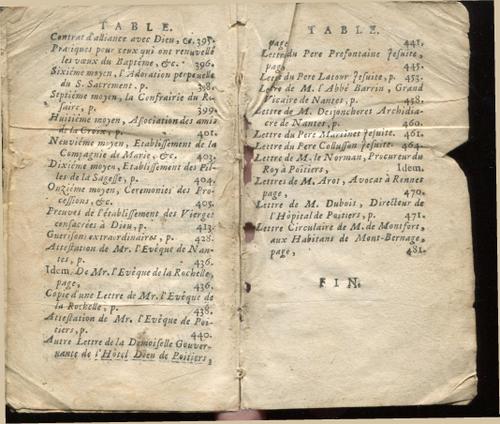 TABLE.
Contrat d'alliance avec Dieu, &c. 395.
Pratiques pour ceux qui ont renuvellé
les vœux du Baptême, &c. 396.
Sixiéme moyen, l'Adoration perpetuelle
du S. Sacrement. p. 398.
Septiéme moyen, la Confrairie du Ro-
saire, p. 399.
Huitiéme moyen, Association des amis
de la Croix, p. 401.
Neuviéme moyen, Etablissement de la
Compagnie de Marie, &c. 403.
Dixiéme moyen, Etablissement des Fil-
les de la Sagesse, p. 404.
Onziéme moyen, Ceremonies des Pro-
cessions, &c. 405.
Preuves de l'établissement des Vierges
consacrées à Dieu, p. 413.
Guerisons extraordinaires, p. 428.
Attestation de Mr. l'Evêque de Nan-
tes, p. 436.
Idem. De Mr. l'Evêque de la Rochelle,
page, 436.
Copie d'une Lettre de Mr. l'Evêque de
la Rochelle, p. 438.
Attestation de Mr. l'Evêque de Poi-
tiers, p. 440.
Autre Lettre de la Demoiselle Gouver-
nante de l'Hôtel Dieu de Poitiers,
TABLE.
page 441.
Lettre du Pere Prefontaine Jesuite,
page, 445.
Lettre du Pere Latour Jesuite, p. 453.
Lettre de M. l'Abbé Barrin, Grand
Vicaire de Nantes, p. 458.
Lettre de M. Desjoncheres Archidia-
cre de Nantes, p. 460.
Lettre du Pere Martinet Jesuite. 461.
Lettre du Pere Collusson Jesuite. 464.
Lettre de M. le Norman, Procureur du
Roy à Poitiers, Idem.
Lettres de M. Arot, Avocat à Rennes
page, 470.
Lettre de M. Dubois, Directeur de
l'Hôpital de Poitiers, p. 471.
Lettre Circulaire de M. de Montfort,
aux Habitans de Mont-Bernage,
page, 481.
FIN.